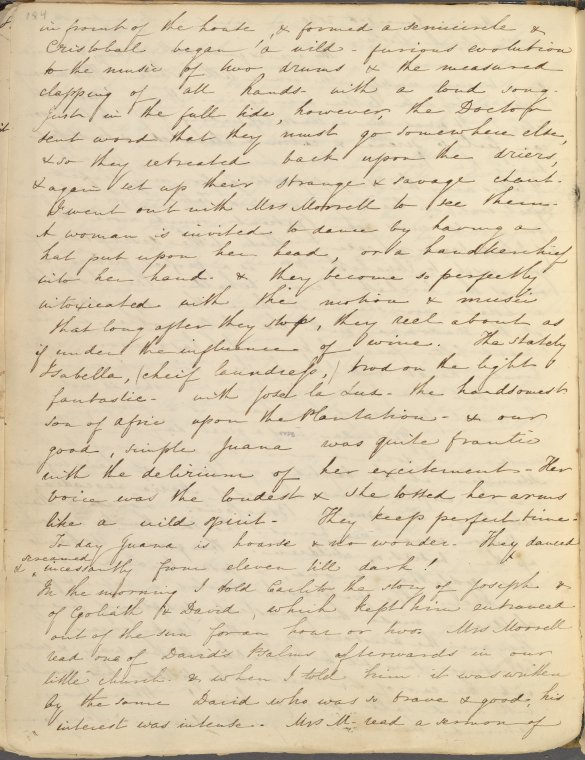 184
in front of the house, & formed a semicircle &
Cristobal began a wild - furious evolution
to the music of two drums & the measured
clapping of all hands with a loud song.
Just in the full tide, however, the Doctor
sent word that they must go somewhere else,
& so they retreated back upon the driers,
& again set up their strange & savage chant.
I went out with Mrs Morrell to see them.
A woman is invited to dance by having a
hat put upon her head, or a handkerchief
into her hand - & they become so perfectly
intoxicated with the motion & music
that long after they stop, they reel about as
if under the influence of wine. The stately
Isabella, (cheif laundress,) trod on the light
fantastic - with José la Luz - the handsomest
son of Afric upon the Plantation - & our
good, simple Juana was quite frantic
with the delirium of her excitement - Her
voice was the loudest & she tossed her arms
like a wild spirit - They keep perfect time -
To day Juana is hoarse & no wonder - They danced
& screamed incessantly from eleven till dark!
In the morning I told Carlito the story of Joseph &
of Goliath & David, which kept him entranced
out of the sun for an hour or two. Mrs Morrell
read one of David's Psalms afterwards in our
little church & when I told him it was written
by the same David who was so brave & good, his
interest was intense - Mrs M- read a sermon of